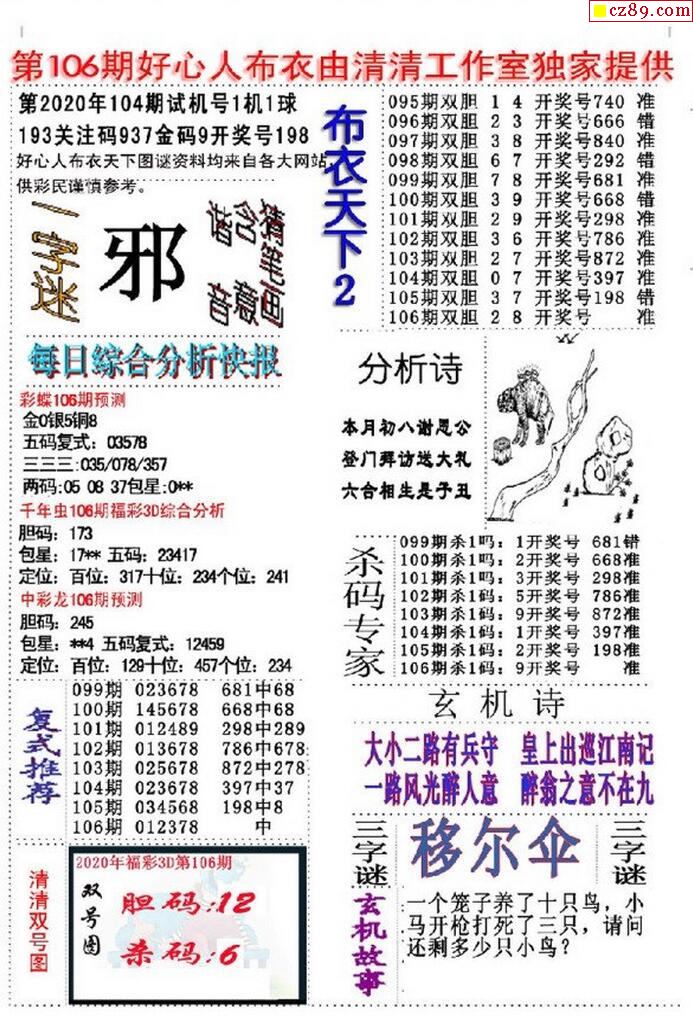 cz89.com
第106期好心人布衣由清清工作室独家提供
第2020年104期试机号1机1球
193关注码937金码9开奖号198
好心人布衣天下图谜资料均来自各大网站,
供彩民谨慎参考。
一字迷
邪
猜笔画
含意
谐音
布衣天下2
095期双胆 1 4 开奖号740 准
096期双胆 2 3 开奖号666 错
097期双胆 3 8 开奖号840 准
098期双胆 6 7 开奖号292 错
099期双胆 7 8 开奖号681 准
100期双胆 3 9 开奖号668 错
101期双胆 2 9 开奖号298 准
102期双胆 3 6 开奖号786 准
103期双胆 2 7 开奖号872 准
104期双胆 0 7 开奖号397 准
105期双胆 3 7 开奖号198 错
106期双胆 2 8 开奖号 准
每日综合分析快报
彩蝶106期预测
金0银5铜8
五码复式：03578
三三三:035/078/357
两码:05 08 37包星:0**
千年虫106期福彩3D综合分析
胆码：173
包星：17** 五码：23417
定位：百位：317十位：234个位：241
中彩龙106期预测
胆码：245
包星：**4 五码复式：12459
定位：百位：129十位：457个位：234
分析诗
本月初八谢恩公
登门拜访送大礼
六合相生是子丑
杀码专家
099期杀1吗：1开奖号 681错
100期杀1吗：2开奖号 668准
101期杀1吗：3开奖号 298准
102期杀1码：5开奖号 786准
103期杀1码：9开奖号 872准
104期杀1码：1开奖号 397准
105期杀1码：2开奖号 198准
106期杀1码：9开奖号 准
复式推荐
099期 023678 681中68
100期 145678 668中68
101期 012489 298中289
102期 013678 786中678
103期 025678 872中278
104期 023678 397中37
105期 034568 198中8
106期 012378 中
玄机诗
大小二路有兵守 皇上出巡江南记
一路风光醉人意 醉翁之意不在九
三字谜
移尔伞
三字谜
清清双号图
2020年福彩3D第106期
双号图
胆码:12
杀码:6
玄机故事
一个笼子养了十只鸟，小
马开枪打死了三只，请问
还剩多少只小鸟？